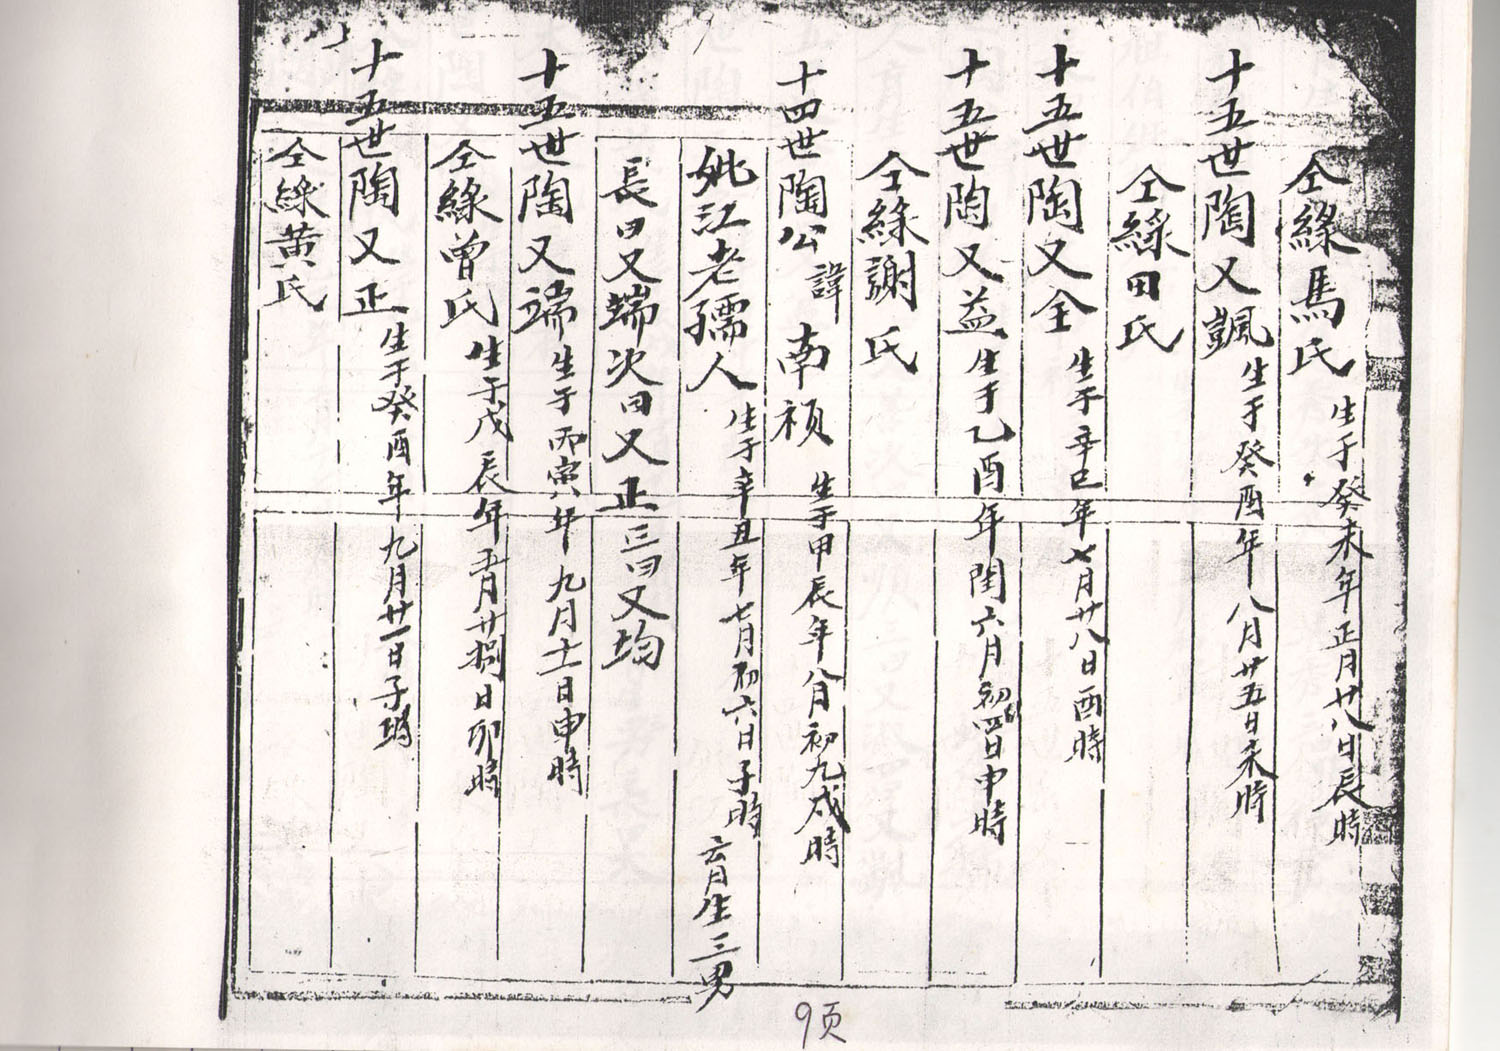 仝緣馬氏 生于癸未年正月廿八日辰時
十五世陶又颽 生于癸酉年八月廿五日未時
仝緣田氏
十五世陶又全 生于辛巳年七月廿八日酉時
十五世陶又益 生于乙酉年閏六月初四日申時
仝緣謝氏
十四世陶公諱南禎 生于甲辰年八月初九戌時
妣江老孺人 生于辛丑年七月初六日子時 育生三男
長曰又端次曰又正三曰又均
十五世陶又端 生于丙寅年九月十一日申時
仝緣曾氏 生于戊辰年五月廿捌日卯時
十五世陶又正 生于癸酉年九月廿一日子時
仝緣黃氏
9页